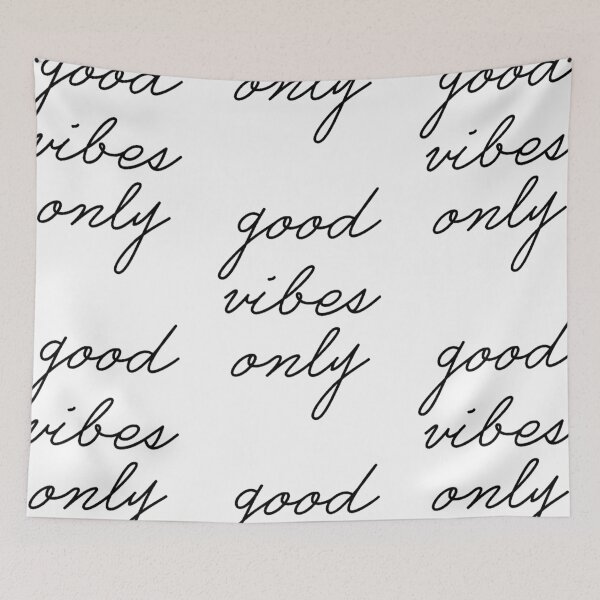 good
vibes
only
good
vibes
only
only
good
vibes
only
good
good
vibes
only
good
vibes
only